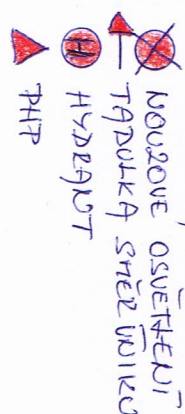 NOUZOVÉ OSVĚTLENÍ
TABULKA SMĚR ÚNIKU
H HYDRANT
PHP